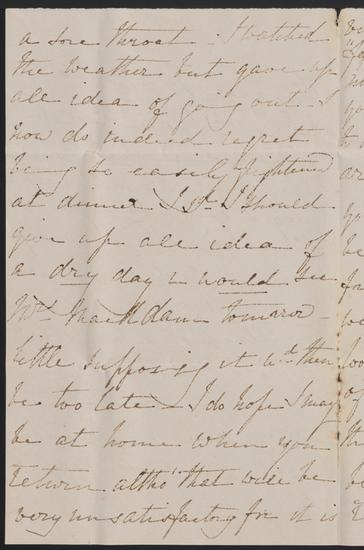 a sore throat - I watched
the weather but gave up
all idea of going out - I
now do indeed regret
being so easily frightened
at dinner I sd. I should
give up all idea of
a dry day & would see
Mrs. MacAdam tomorrow -
little supposing it wd. then
be too late - I do hope I may
be at home when you
return altho' that will be
very unsatisfactory for it is